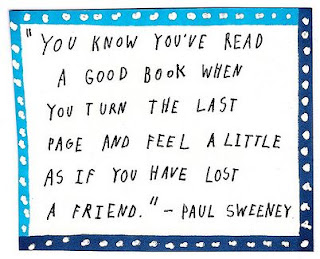 "YOU KNOW YOU'VE READ
A GOOD BOOK WHEN
YOU TURN THE LAST
PAGE AND FEEL A LITTLE
AS IF YOU HAVE LOST
A FRIEND." – PAUL SWEENEY